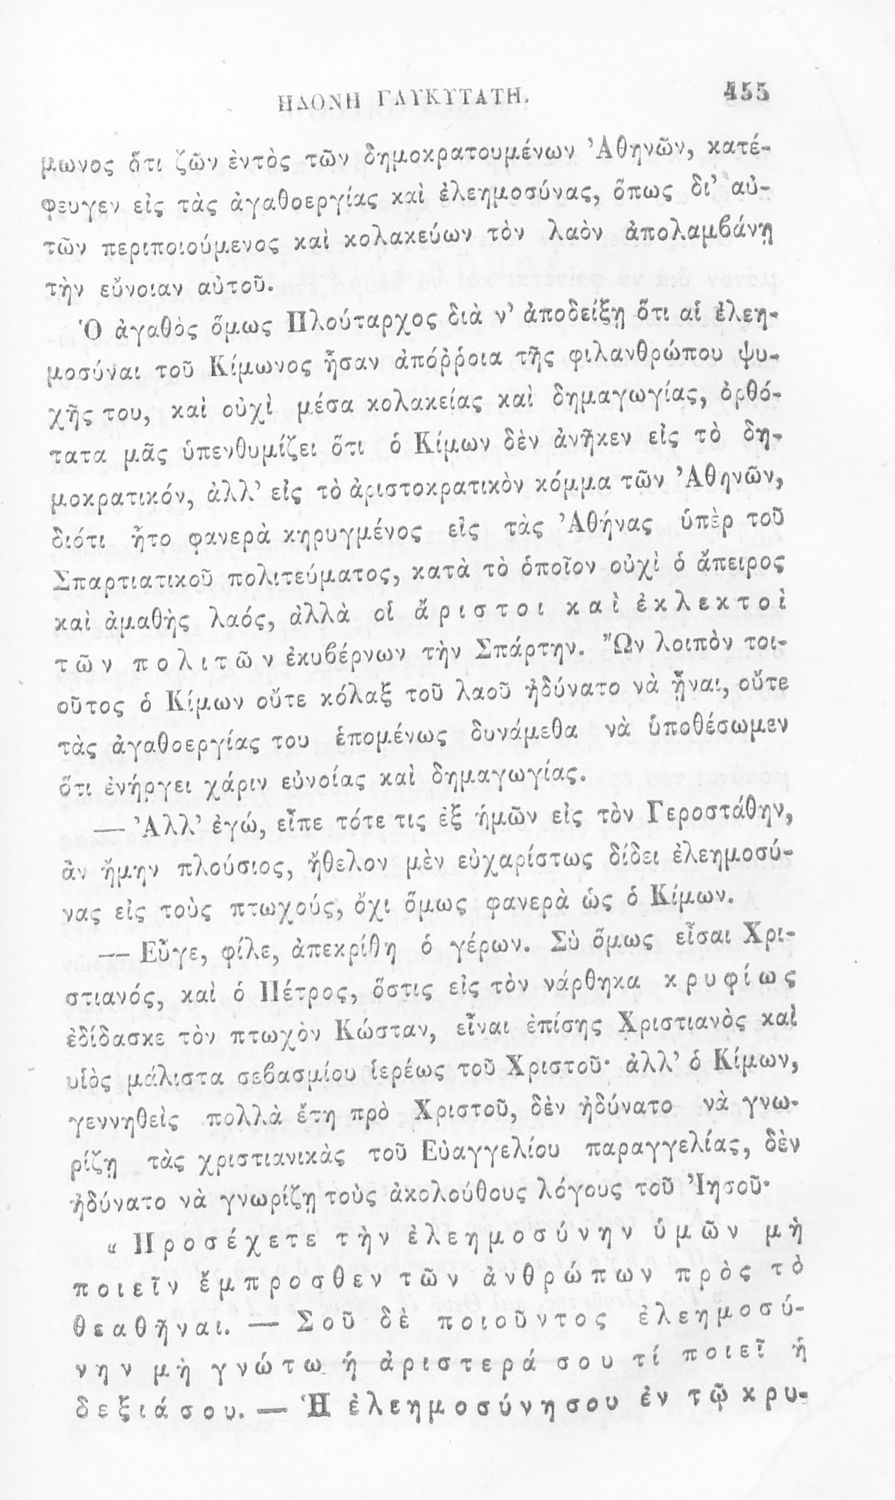 ΗΔΟΝΗ ΓΛΥΚΥΤΑΤΗ. 455
μωνος ὅτι ζῶν ἐντὸς τῶν δημοκρατουμένων Ἀθηνῶν, κατέ-
φευγεν εἰς τὰς ἀγαθοεργίας καὶ ἐλεημοσύνας, ὅπως δι’ αὐ-
τῶν περιποιούμενος καὶ κολακεύων τὸν λαὸν ἀπολαμβάνῃ
τὴν εὔνοιαν αὐτοῦ.
Ὁ ἀγαθὸς ὅμως Πλούταρχος διὰ ν’ ἀποδείξῃ ὅτι αἱ ἐλεη-
μοσύναι τοῦ Κίμωνος ἦσαν ἀπόῤῥοια τῆς φιλανθρώπου ψυ-
χῆς του, καὶ οὐχὶ μέσα κολακείας καὶ δημαγωγίας, ὀρθό-
τατα μᾶς ὑπενθυμίζει ὅτι ὁ Κίμων δὲν ἀνῆκεν εἰς τὸ δη-
μοκρατικόν, ἀλλ’ εἰς τὸ ἀριστοκρατικὸν κόμμα τῶν Ἀθηνῶν,
διότι ἦτο φανερὰ κηρυγμένος εἰς τὰς Ἀθήνας ὑπὲρ τοῦ
Σπαρτιατικοῦ πολιτεύματος, κατὰ τὸ ὁποῖον οὐχὶ ὁ ἄπειρος
καὶ ἀμαθὴς λαός, ἀλλὰ οἱ ἄριστοι καὶ ἐκλεκτοὶ
τῶν πολιτῶν ἐκυβέρνων τὴν Σπάρτην. Ὢν λοιπὸν τοι-
οῦτος ὁ Κίμων οὔτε κόλαξ τοῦ λαοῦ ἠδύνατο νὰ ᾖναι, οὔτε
τὰς ἀγαθοεργίας του ἑπομένως δυνάμεθα νὰ ὑποθέσωμεν
ὅτι ἐνήργει χάριν εὐνοίας καὶ δημαγωγίας.
— Ἀλλ’ ἐγώ, εἶπε τότε τις ἐξ ἡμῶν εἰς τὸν Γεροστάθην,
ἀν ἤμην πλούσιος, ἤθελον μὲν εὐχαρίστως δίδει ἐλεημοσύ-
νας εἰς τοὺς πτωχούς, ὄχι ὅμως φανερὰ ὡς ὁ Κίμων.
— Εὖγε, φίλε, ἀπεκρίθη ὁ γέρων. Σὺ ὅμως εἶσαι Χρι-
στιανός, καὶ ὁ Πέτρος, ὅστις εἰς τὸν νάρθηκα κρυφίως
ἐδίδασκε τὸν πτωχὸν Κώσταν, εἶναι ἐπίσης Χριστιανὸς καὶ
υἱὸς μάλιστα σεβασμίου ἱερέως τοῦ Χριστοῦ· ἀλλ’ ὁ Κίμων,
γεννηθεὶς πολλὰ ἔτη πρὸ Χριστοῦ, δὲν ἠδύνατο νὰ γνω-
ρίζῃ τὰς χριστιανικὰς τοῦ Εὐαγγελίου παραγγελίας, δὲν
ἠδύνατο νὰ γνωρίζῃ τοὺς ἀκολούθους λόγους τοῦ Ἰησοῦ·
« Προσέχετε τὴν ἐλεημοσύνην ὑμῶν μὴ
ποιεῖν ἔμπροσθεν τῶν ἀνθρώπων πρὸς τὸ
θεαθῆναι. — Σοῦ δὲ ποιοῦντος ἐλεημοσύ-
νην μὴ γνώτω ἡ ἀριστερά σου τί ποιεῖ ἡ
δεξιά σου. — Ἡ ἐλεημοσύνη σου ἐν τῷ κρυ-